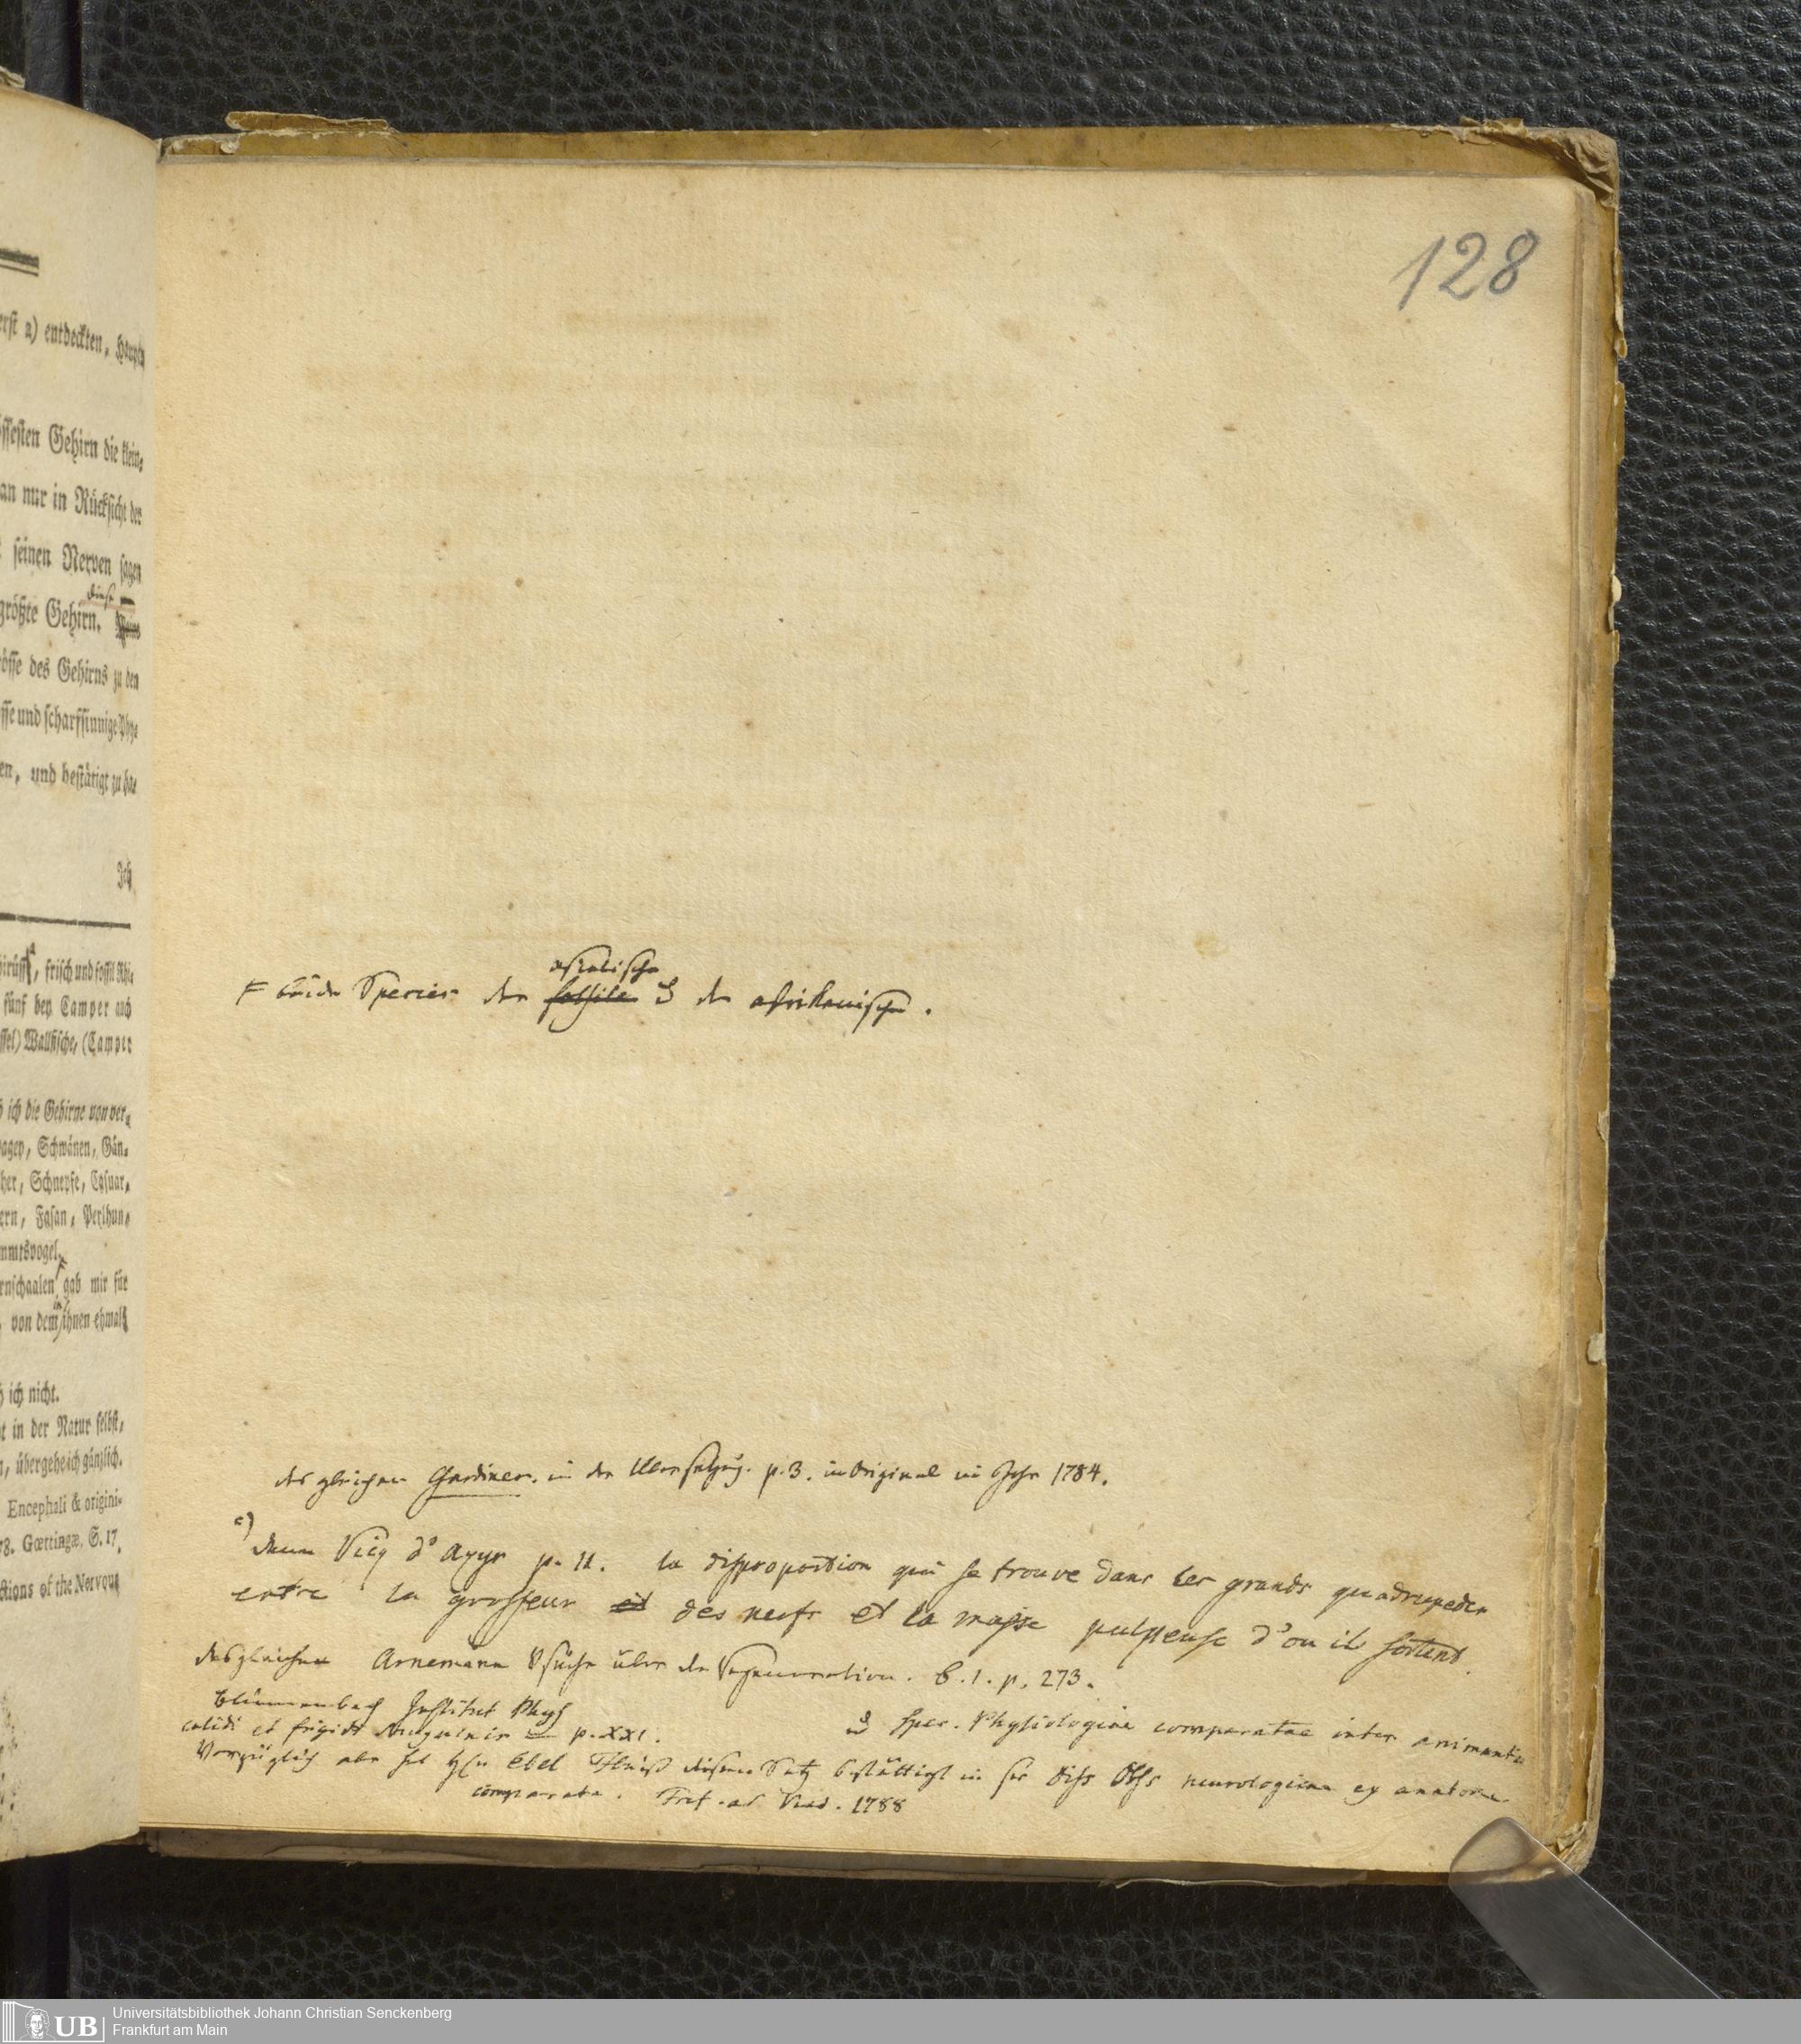 128
erst a) entdeckten, Haupt-
össesten Gehirn die klein-
an nur in Rücksicht der
seinen Nerven sagen
diese
größte Gehirn.
össe des Gehirns zu den
sse und scharfsinnige Phy-
en, und bestätigt zu ha-
Ich
frisch und fossil Rhi-
fünf bey Camper auch
ffel) Wallfische, (Camper
ich die Gehirne von ver-
pagey, Schwänen, Gän-
her, Schnepfe, Casuar,
ern, Fasan, Perlhun-
mmtsvogel,
rnschaalen gab mir für
in
von dem ihnen ehmals
ich nicht.
t in der Natur selbst,
n, übergehe ich gänzlich.
Encephali & origini-
78. Gœttingæ, S. 17.
ctions of the Nervous
asiatische
F beide Species der fossile u der afrikanische.
desgleichen Gardiner. in der Übersetzung. p. 3. im Original im Jahr 1784.
c)
Vicq d'Azyr p. 11. la disproportion qui se trouve dans les grands quadrupedes
entre la grosseur et des nerfs et la masse pulpeuse d'ou ils sortent.
desgleichen Arnemann Vsuche über die Regeneration. B. 1. p. 273.
Blumenbach Institut Phys
u spec. Physiologiae comparatae inter animantia
calidi et frigidi sanguinis p. XXI.
Vorzüglich aber hat Ebel diesen Satz bestättigt in sr Diss Obss neurologicae ex anatome
comparata. Frcf. ad Viad. 1788
UB
Universitätsbibliothek Johann Christian Senckenberg
Frankfurt am Main